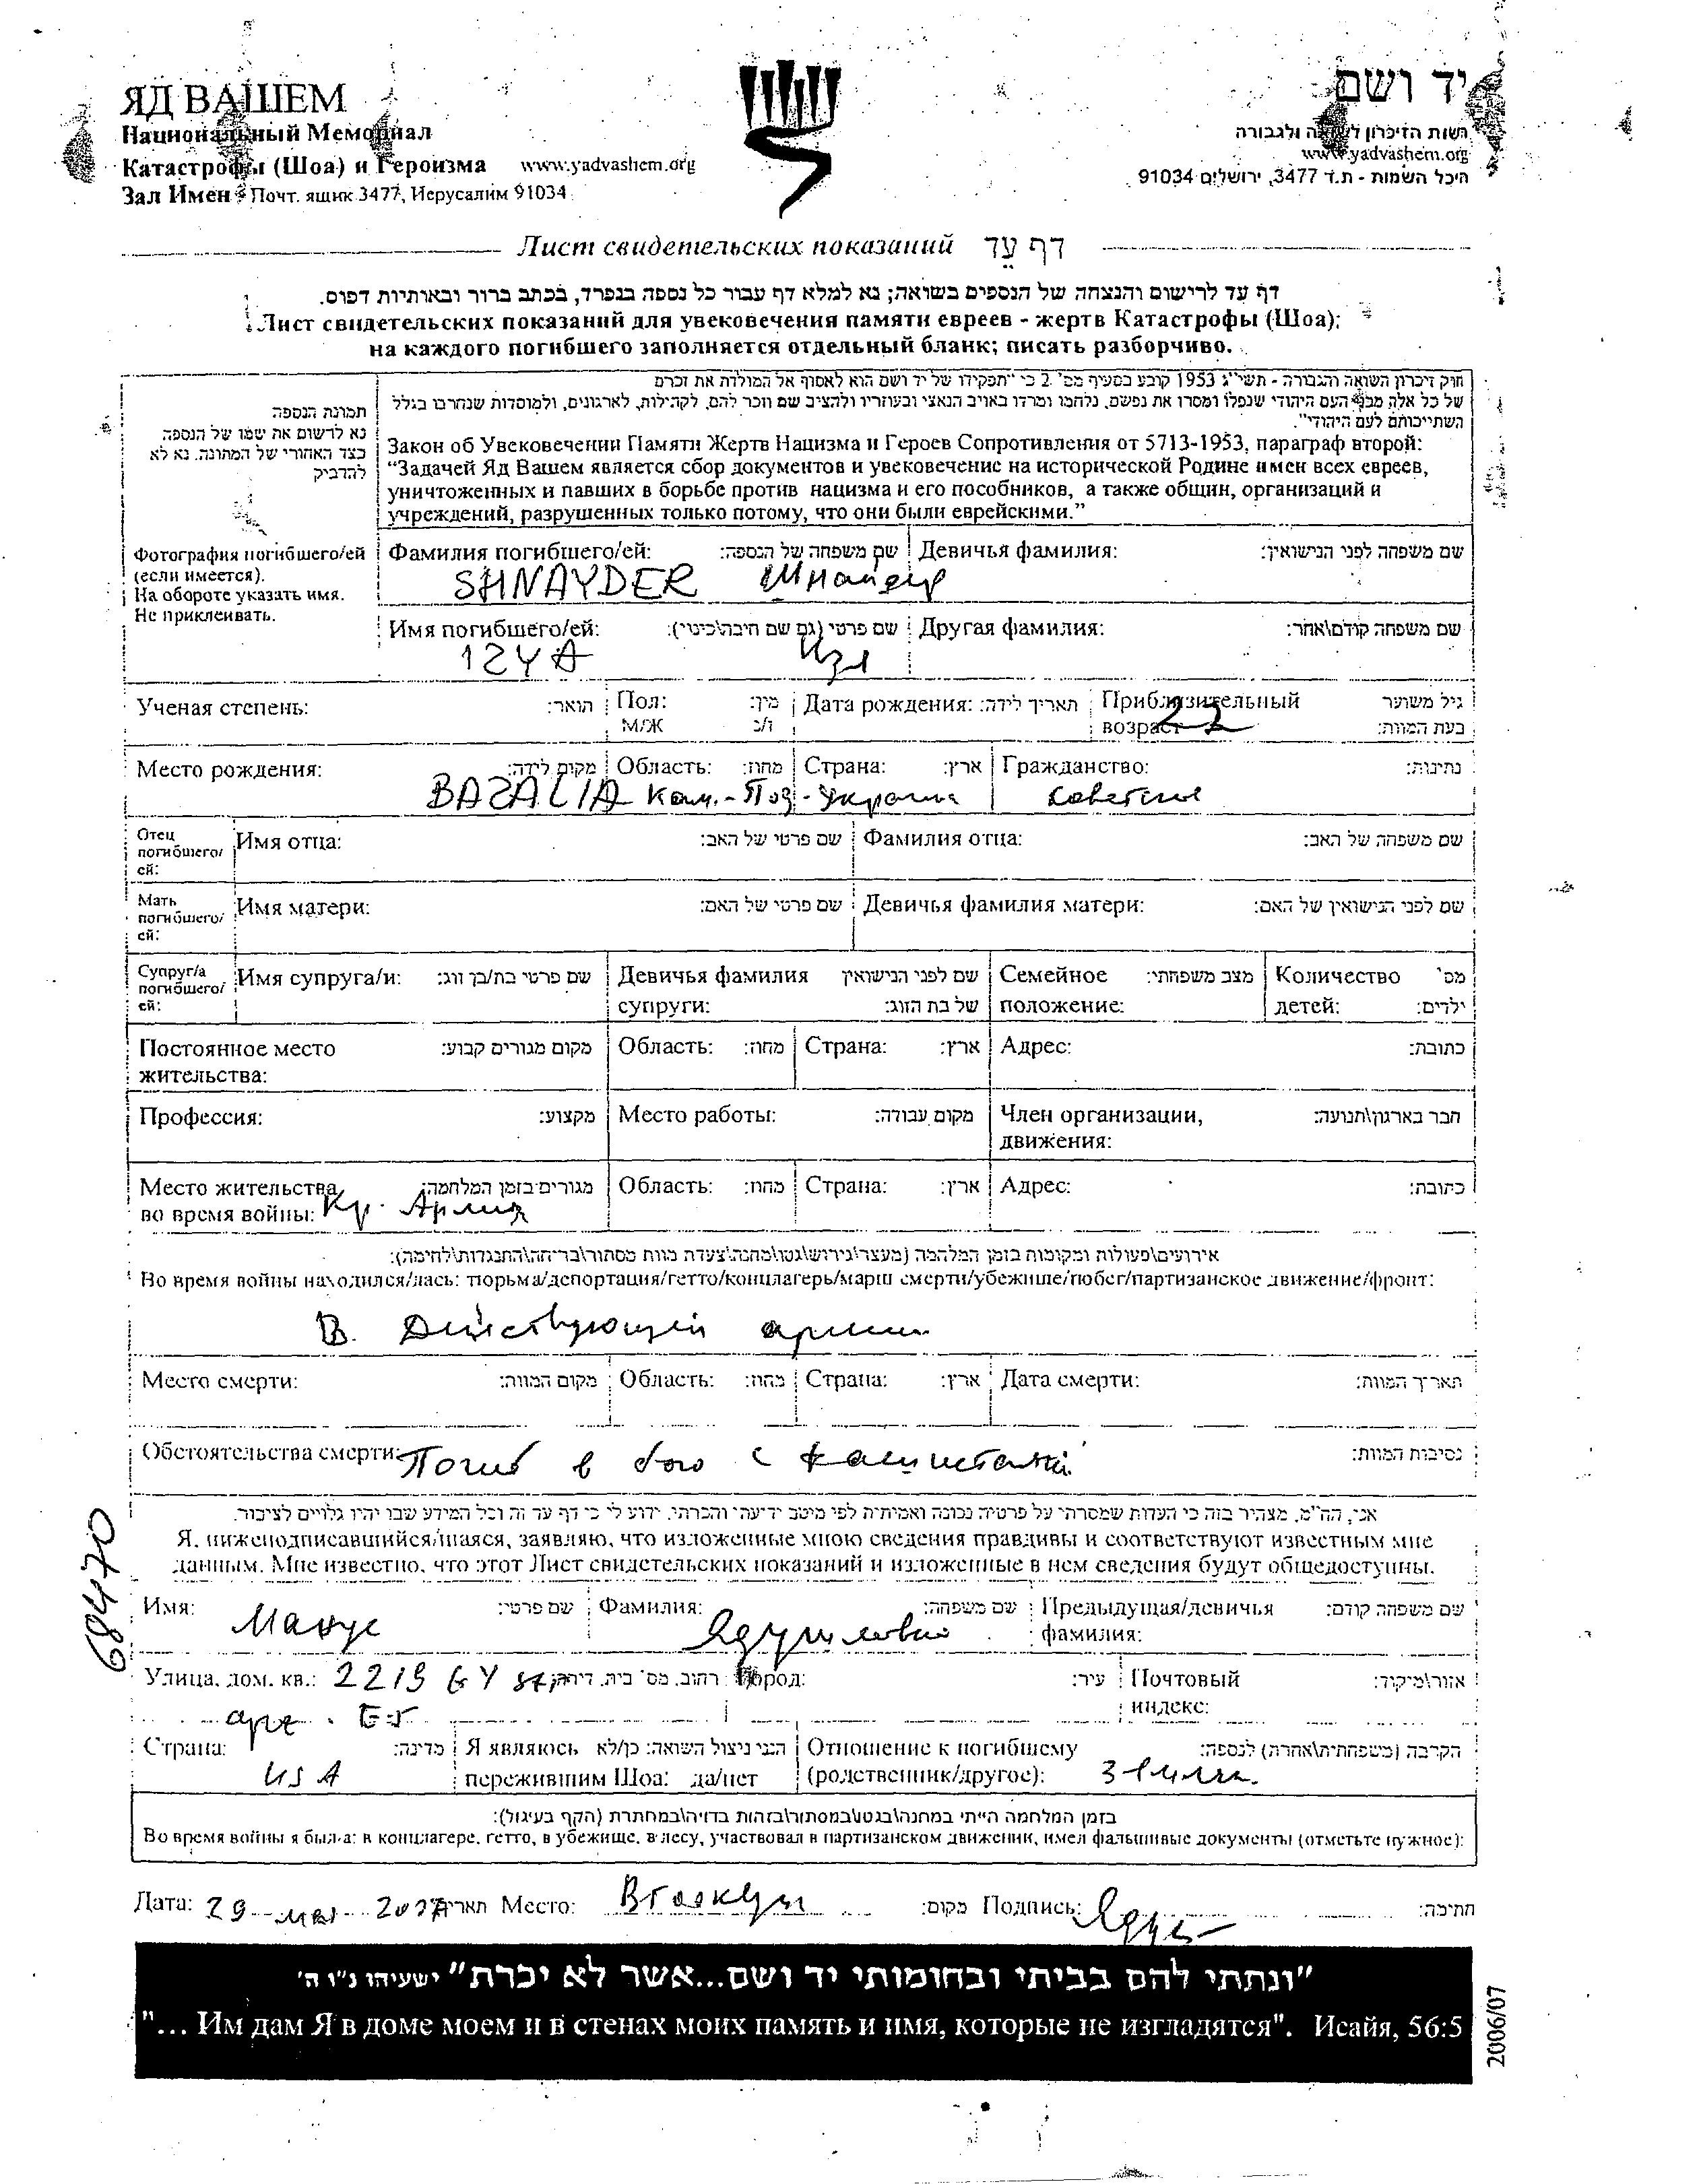 ЯД ВАШЕМ
Национальный Мемориал
Катастрофы (Шоа) и Героизма www.yadvashem.org
Зал Имен Почт. ящик 3477, Иерусалим 91034
יד ושם
רשות הזיכרון לשואה ולגבורה
www.yadvashem.org
היכל השמות - ת.ד 3477, ירושלים 91034
Лист свидетельских показаний דף עד
דף עד לרישום והנצחה של הנספים בשואה; נא למלא דף עבור כל נספה בנפרד, בכתב ברור ובאותיות דפוס.
Лист свидетельских показаний для увековечения памяти евреев - жертв Катастрофы (Шоа);
на каждого погибшего заполняется отдельный бланк; писать разборчиво.
תמונת הנספה
נא לרשום את שמו של הנספה
בצד האחורי של התמונה. נא לא
להדביק
Фотография погибшего/ей
(если имеется).
На обороте указать имя.
Не приклеивать.
חוק זיכרון השואה והגבורה - תשי"ג 1953 קובע בסעיף מס' 2 כי "תפקידו של יד ושם הוא לאסוף אל המולדת את זכרם
של כל אלה מבני העם היהודי שנפלו ומסרו את נפשם, נלחמו ומרדו באויב הנאצי ובעוזריו ולהציב שם וזכר להם, לקהילות, לארגונים, ולמוסדות שנחרבו בגלל
השתייכותם לעם היהודי".
Закон об Увековечении Памяти Жертв Нацизма и Героев Сопротивления от 5713-1953, параграф второй:
"Задачей Яд Вашем является сбор документов и увековечение на исторической Родине имен всех евреев,
уничтоженных и павших в борьбе против нацизма и его пособников, а также общин, организаций и
учреждений, разрушенных только потому, что они были еврейскими."
Фамилия погибшего/ей: שם משפחה של הנספה: Девичья фамилия: שם משפחה לפני הנישואין:
SHNAYDER Шнайдер
Имя погибшего/ей: שם פרטי (גם שם חיבה\כינוי): Другая фамилия: שם משפחה קודם\אחר:
IZYA Изя
Ученая степень: תואר: Пол: מין: Дата рождения: תאריך לידה: Приблизительный גיל משוער
М/Ж ז/נ возраст 22 בעת המוות:
Место рождения: מקום לידה: Область: מחוז: Страна: ארץ: Гражданство: נתינות:
BAZALIA Кам.-Под- Украина советское
Отец погибшего/ей: Имя отца: שם פרטי של האב: Фамилия отца: שם משפחה של האב:
Мать погибшего/ей: Имя матери: שם פרטי של האם: Девичья фамилия матери: שם לפני הנישואין של האם:
Супруг/а погибшего/ей: Имя супруга/и: שם פרטי בת/בן זוג: Девичья фамилия שם לפני הנישואין Семейное מצב משפחתי: Количество מס'
супруги: של בת הזוג: положение: детей: ילדים:
Постоянное место מקום מגורים קבוע: Область: מחוז: Страна: ארץ: Адрес: כתובת:
жительства:
Профессия: מקצוע: Место работы: מקום עבודה: Член организации, חבר בארגון\תנועה:
движения:
Место жительства מגורים בזמן המלחמה: Область: מחוז: Страна: ארץ: Адрес: כתובת:
во время войны: Кр. Армия
אירועים\פעולות ומקומות בזמן המלחמה (מעצר\גירוש\גטו\מחנה\צעדת מוות מסתור\בריחה\התנגדות\לחימה):
Во время войны находился/лась: тюрьма/депортация/гетто/концлагерь/марш смерти/убежище/побег/партизанское движение/фронт:
В. Действующей армии
Место смерти: מקום המוות: Область: מחוז: Страна: ארץ: Дата смерти: תאריך המוות:
Обстоятельства смерти: Погиб в бою с фашистами נסיבות המוות:
אני, הח"מ, מצהיר בזה כי העדות שמסרתי על פרטיה נכונה ואמיתית לפי מיטב ידיעתי והכרתי. ידוע לי כי דף עד זה וכל המידע שבו יהיו גלויים לציבור.
Я, нижеподписавшийся/шаяся, заявляю, что изложенные мною сведения правдивы и соответствуют известным мне
данным. Мне известно, что этот Лист свидетельских показаний и изложенные в нем сведения будут общедоступны.
Имя: Манус שם פרטי: Фамилия: שם משפחה: Предыдущая/девичья שם משפחה קודם:
фамилия:
Улица, дом. кв.: 2219 רחוב, מס' בית, דירה: Город: עיר: Почтовый אזור\מיקוד:
индекс:
Страна: מדינה: Я являюсь הנני ניצול השואה: כן/לא Отношение к погибшему הקרבה (משפחתית\אחרת) לנספה:
USA пережившим Шоа: да/нет (родственник/другое):
בזמן המלחמה הייתי במחנה\בגטו\במסתור\בזהות בדויה\במחתרת (הקף בעיגול):
Во время войны я был-а: в концлагере, гетто, в убежище, в лесу, участвовал в партизанском движении, имел фальшивые документы (отметьте нужное):
Дата: 29 мая 2007 תאריך Место: Brooklyn מקום: Подпись: חתימה:
"ונתתי להם בביתי ובחומותי יד ושם...אשר לא יכרת" ישעיהו נ"ו ה'
"... Им дам Я в доме моем и в стенах моих память и имя, которые не изгладятся". Исайя, 56:5
68470
2006/07